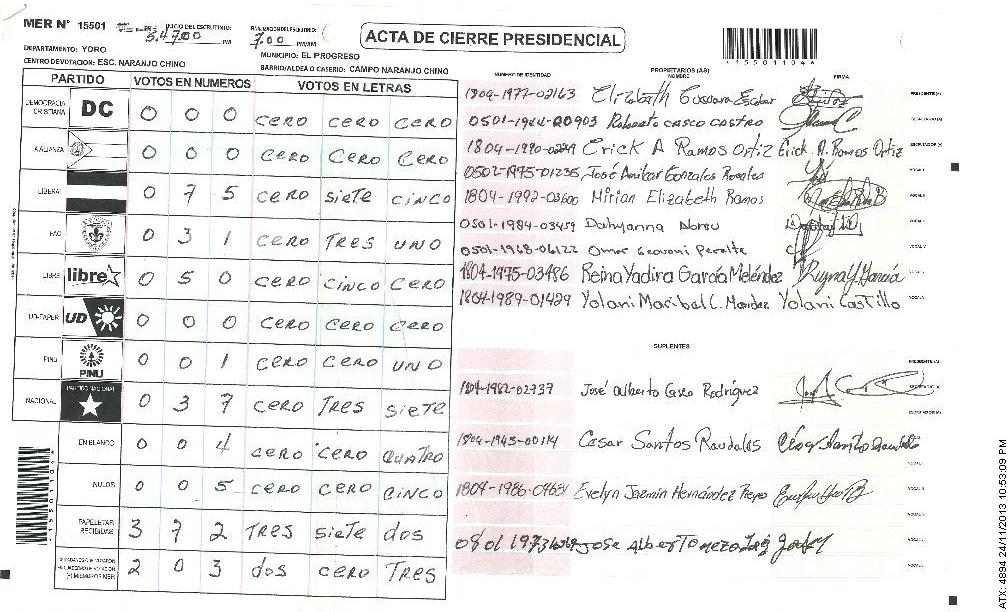 MER N° 15501
INICIO DEL ESCRUTINIO: 5.47.00 PM
7.00 PM/AM
ACTA DE CIERRE PRESIDENCIAL
DEPARTAMENTO: YORO
MUNICIPIO: EL PROGRESO
CENTRO DE VOTACION: ESC. NARANJO CHINO
BARRIO/ALDEA O CASERIO: CAMPO NARANJO CHINO
PARTIDO VOTOS EN NUMEROS VOTOS EN LETRAS
DEMOCRACIA CRISTIANA DC 0 0 0 CERO CERO CERO
ALIANZA 0 0 0 CERO CERO CERO
LIBERAL 0 7 5 CERO SIETE CINCO
PAC 0 3 1 CERO TRES UNO
LIBRE libre 0 5 0 CERO CINCO CERO
UD-FAPER UD 0 0 0 CERO CERO CERO
PINU PINU 0 0 1 CERO CERO UNO
NACIONAL PARTIDO NACIONAL 0 3 7 CERO TRES SIETE
EN BLANCO 0 0 4 CERO CERO CUATRO
NULOS 0 0 5 CERO CERO CINCO
PAPELETAS RECIBIDAS 3 7 2 TRES SIETE DOS
2 0 3 DOS CERO TRES
NUMERO DE IDENTIDAD PROPIETARIOS (AS) NOMBRE FIRMA
1804-1977-02163 Elizabeth Guevara Escobar
Roberto CASCO CASTRO
Erick A Ramos Ortiz Erick A. Ramos Ortiz
0502-1975-01235 José Amilcar Gonzales Rosales
1804-1992-03600 Mirian Elizabeth Ramos
0501-1984-03459
0501-1968-06122 Omar Geovani Peralta
1804-1975-03486 Reina Yadira García Meléndez
1804-1989-01429 Yolani Maribel C. Mendez Yolani Castillo
SUPLENTES
1804-1982-02737 José Alberto Caro Rodríguez
1804-1943-00114 Cesar Santos
Evelyn Jazmin Hernández
0801 1973
Jose Alberto
*15501104*
ATX: 4894 24/11/2013 10:53:09 PM